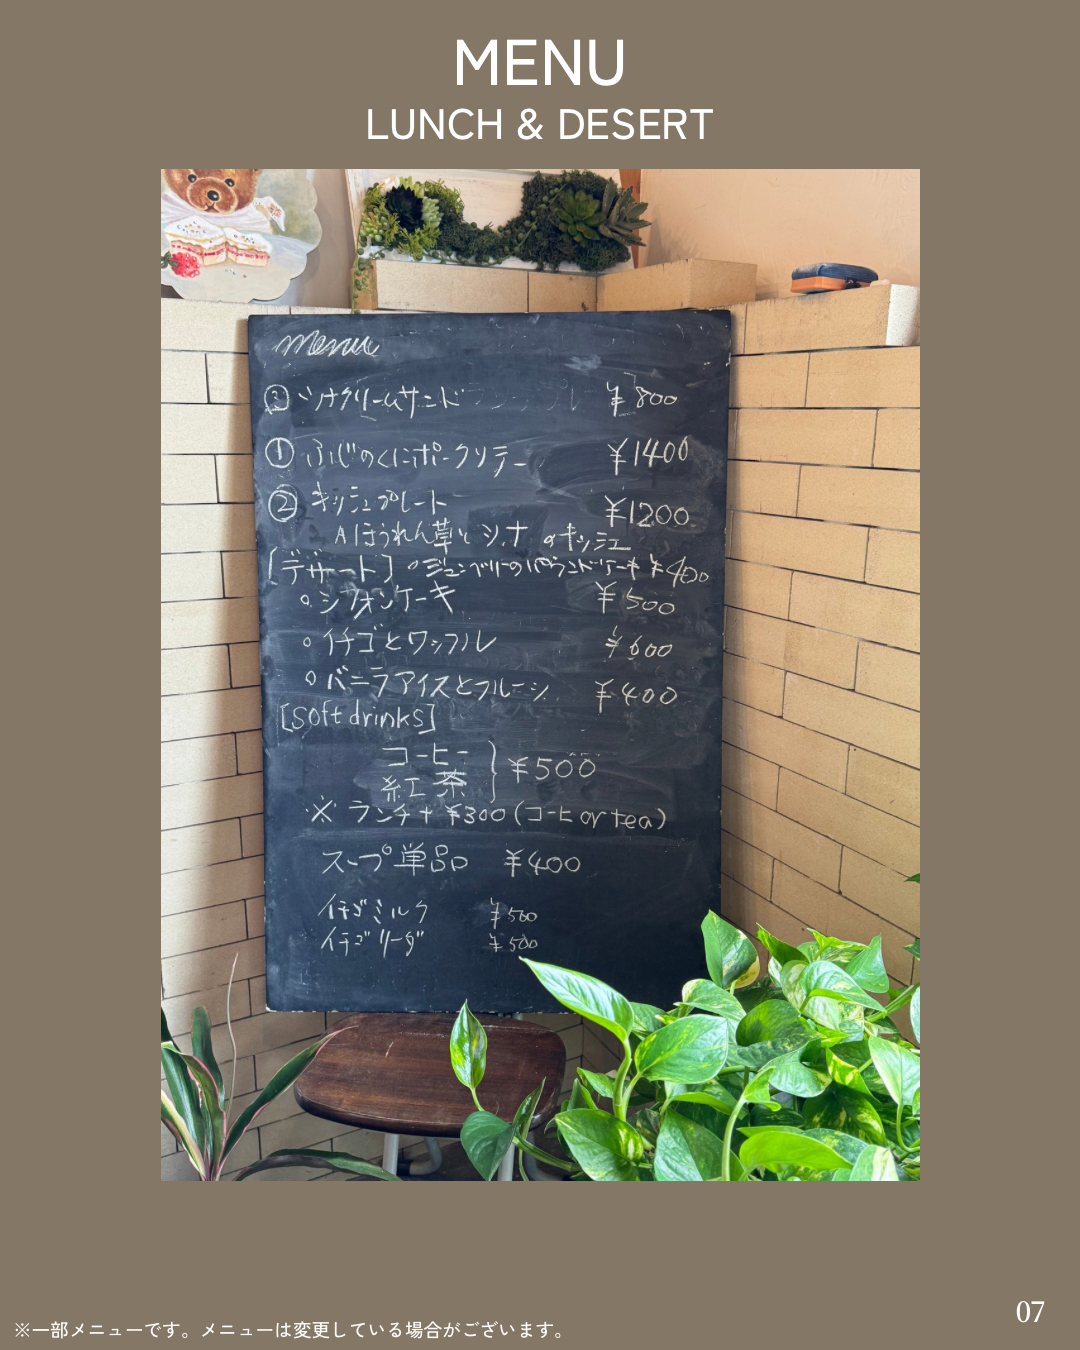 MENU
LUNCH & DESERT
menu
③ ツナクリームサンド ¥800
① ふじのくにポークソテー ¥1400
② キッシュプレート ¥1200
Aほうれん草とシーナのキッシュ
[デザート] ○ジューンベリーのパウンドケーキ ¥400
○シフォンケーキ ¥500
○イチゴとワッフル ¥600
○バニラアイスとフルーツ ¥400
[soft drinks]
コーヒー
紅茶 } ¥500
※ ランチ+¥300(コーヒ or tea)
スープ単品 ¥400
イチゴミルク ¥500
イチゴソーダ ¥500
07
※一部メニューです。メニューは変更している場合がございます。